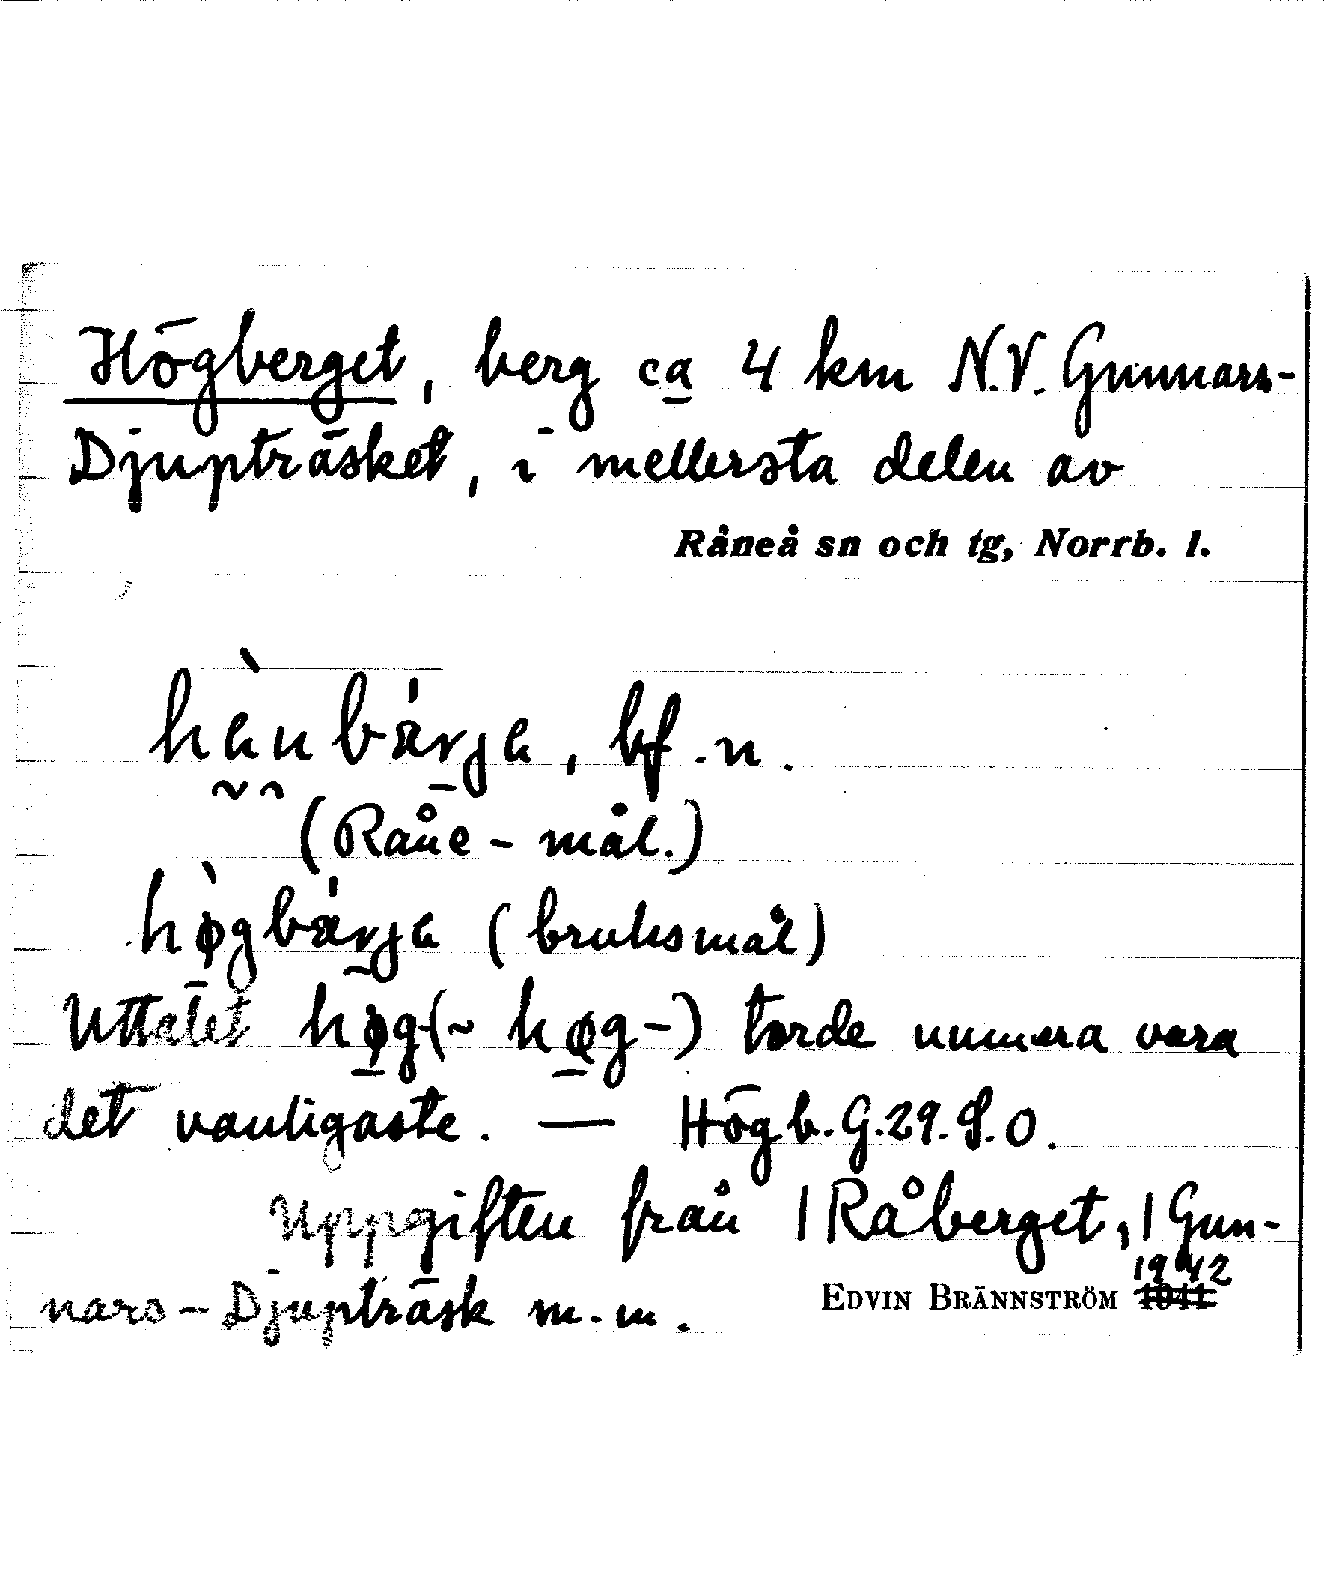 Högberget, berg ca 4 km N.V. Gunnars-
Djupträsket, i mellersta delen av
Råneå sn och tg, Norrb. l.
hàu̯bárja, bf.n.
(Råne-mål.)
hø̀gbárja (bruksmål)
Uttalet høg(~ høg-) torde numera vara
det vanligaste. — Högb. G.29.S.O.
Uppgiften från 1 Råberget, 1 Gun-
nars-Djupträsk m.m.
EDVIN BRÄNNSTRÖM 1942